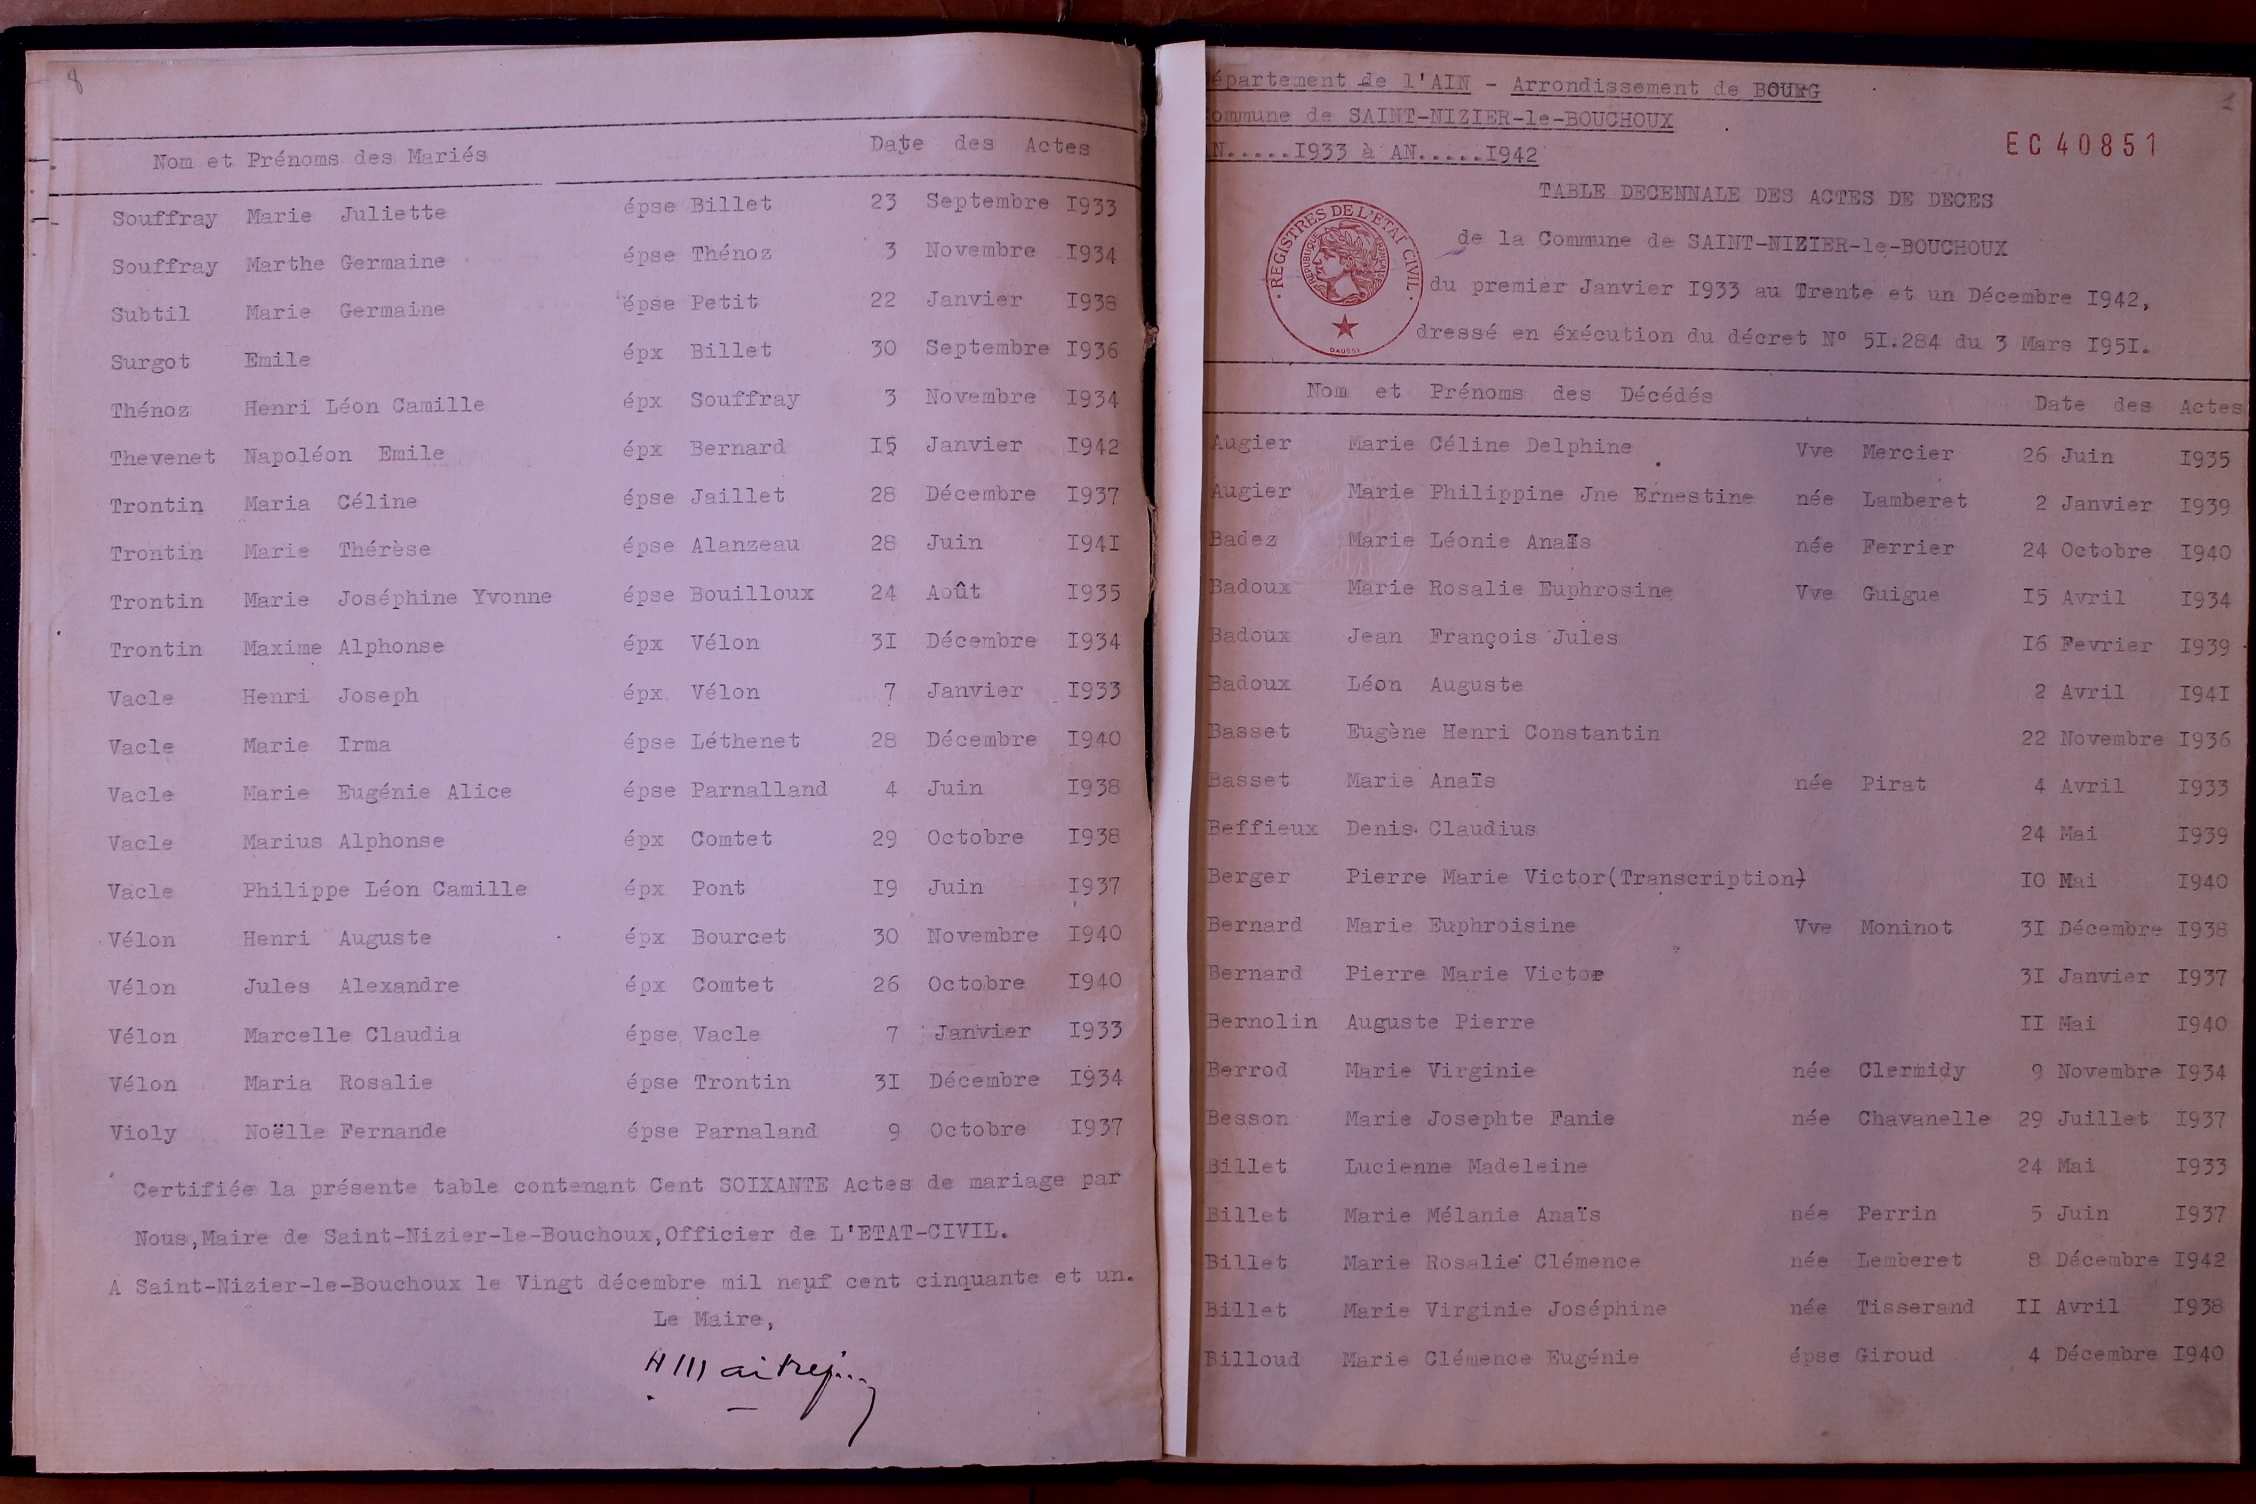 8
Nom et Prénoms des Mariés Date des Actes
Souffray Marie Juliette épse Billet 23 Septembre I933
Souffray Marthe Germaine épse Thénoz 3 Novembre I934
Subtil Marie Germaine épse Petit 22 Janvier I938
Surgot Emile épx Billet 30 Septembre I936
Thénoz Henri Léon Camille épx Souffray 3 Novembre I934
Thevenet Napoléon Emile épx Bernard I5 Janvier I942
Trontin Maria Céline épse Jaillet 28 Décembre I937
Trontin Marie Thérèse épse Alanzeau 28 Juin I94I
Trontin Marie Joséphine Yvonne épse Bouilloux 24 Août I935
Trontin Maxime Alphonse épx Vélon 3I Décembre I934
Vacle Henri Joseph épx Vélon 7 Janvier I933
Vacle Marie Irma épse Léthenet 28 Décembre I940
Vacle Marie Eugénie Alice épse Parnalland 4 Juin I938
Vacle Marius Alphonse épx Comtet 29 Octobre I938
Vacle Philippe Léon Camille épx Pont I9 Juin I937
Vélon Henri Auguste épx Bourcet 30 Novembre I940
Vélon Jules Alexandre épx Comtet 26 Octobre I940
Vélon Marcelle Claudia épse Vacle 7 Janvier I933
Vélon Maria Rosalie épse Trontin 3I Décembre I934
Violy Noëlle Fernande épse Parnaland 9 Octobre I937
Certifiée la présente table contenant Cent SOIXANTE Actes de mariage par
Nous,Maire de Saint-Nizier-le-Bouchoux,Officier de L'ETAT-CIVIL.
A Saint-Nizier-le-Bouchoux le Vingt décembre mil neuf cent cinquante et un.
Le Maire,
épartement de l'AIN - Arrondissement de BOURG
1
ommune de SAINT-NIZIER-le-BOUCHOUX
N.....I933 à AN.....I942
EC40851
TABLE DECENNALE DES ACTES DE DECES
REGISTRES DE L'ETAT CIVIL
REPUBLIQUE FRANÇAISE
de la Commune de SAINT-NIZIER-le-BOUCHOUX
du premier Janvier I933 au Trente et un Décembre I942,
dressé en éxécution du décret Nº 5I.284 du 3 Mars I95I.
Nom et Prénoms des Décédés Date des Actes
Augier Marie Céline Delphine Vve Mercier 26 Juin I935
Augier Marie Philippine Jne Ernestine née Lamberet 2 Janvier I939
Badez Marie Léonie Anaïs née Ferrier 24 Octobre I940
Badoux Marie Rosalie Euphrosine Vve Guigue I5 Avril I934
Badoux Jean François Jules I6 Fevrier I939
Badoux Léon Auguste 2 Avril I94I
Basset Eugène Henri Constantin 22 Novembre I936
Basset Marie Anaïs née Pirat 4 Avril I933
Beffieux Denis Claudius 24 Mai I939
Berger Pierre Marie Victor(Transcription) I0 Mai I940
Bernard Marie Euphroisine Vve Moninot 3I Décembre I938
Bernard Pierre Marie Victor 3I Janvier I937
Bernolin Auguste Pierre II Mai I940
Berrod Marie Virginie née Clermidy 9 Novembre I934
Besson Marie Josephte Fanie née Chavanelle 29 Juillet I937
Billet Lucienne Madeleine 24 Mai I933
Billet Marie Mélanie Anaïs née Perrin 5 Juin I937
Billet Marie Rosalie Clémence née Lemberet 8 Décembre I942
Billet Marie Virginie Joséphine née Tisserand II Avril I938
Billoud Marie Clémence Eugénie épse Giroud 4 Décembre I940